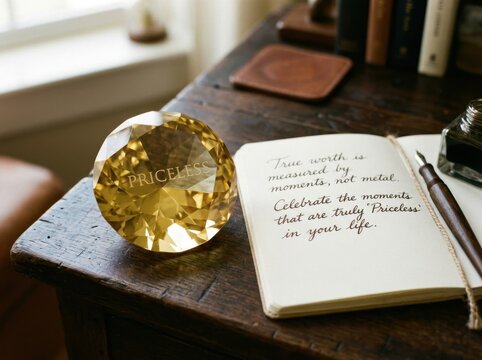 PRICELESS
True worth is
measured by
moments, not metal
Celebrate the moments
that are truly 'Priceless'
in your life.